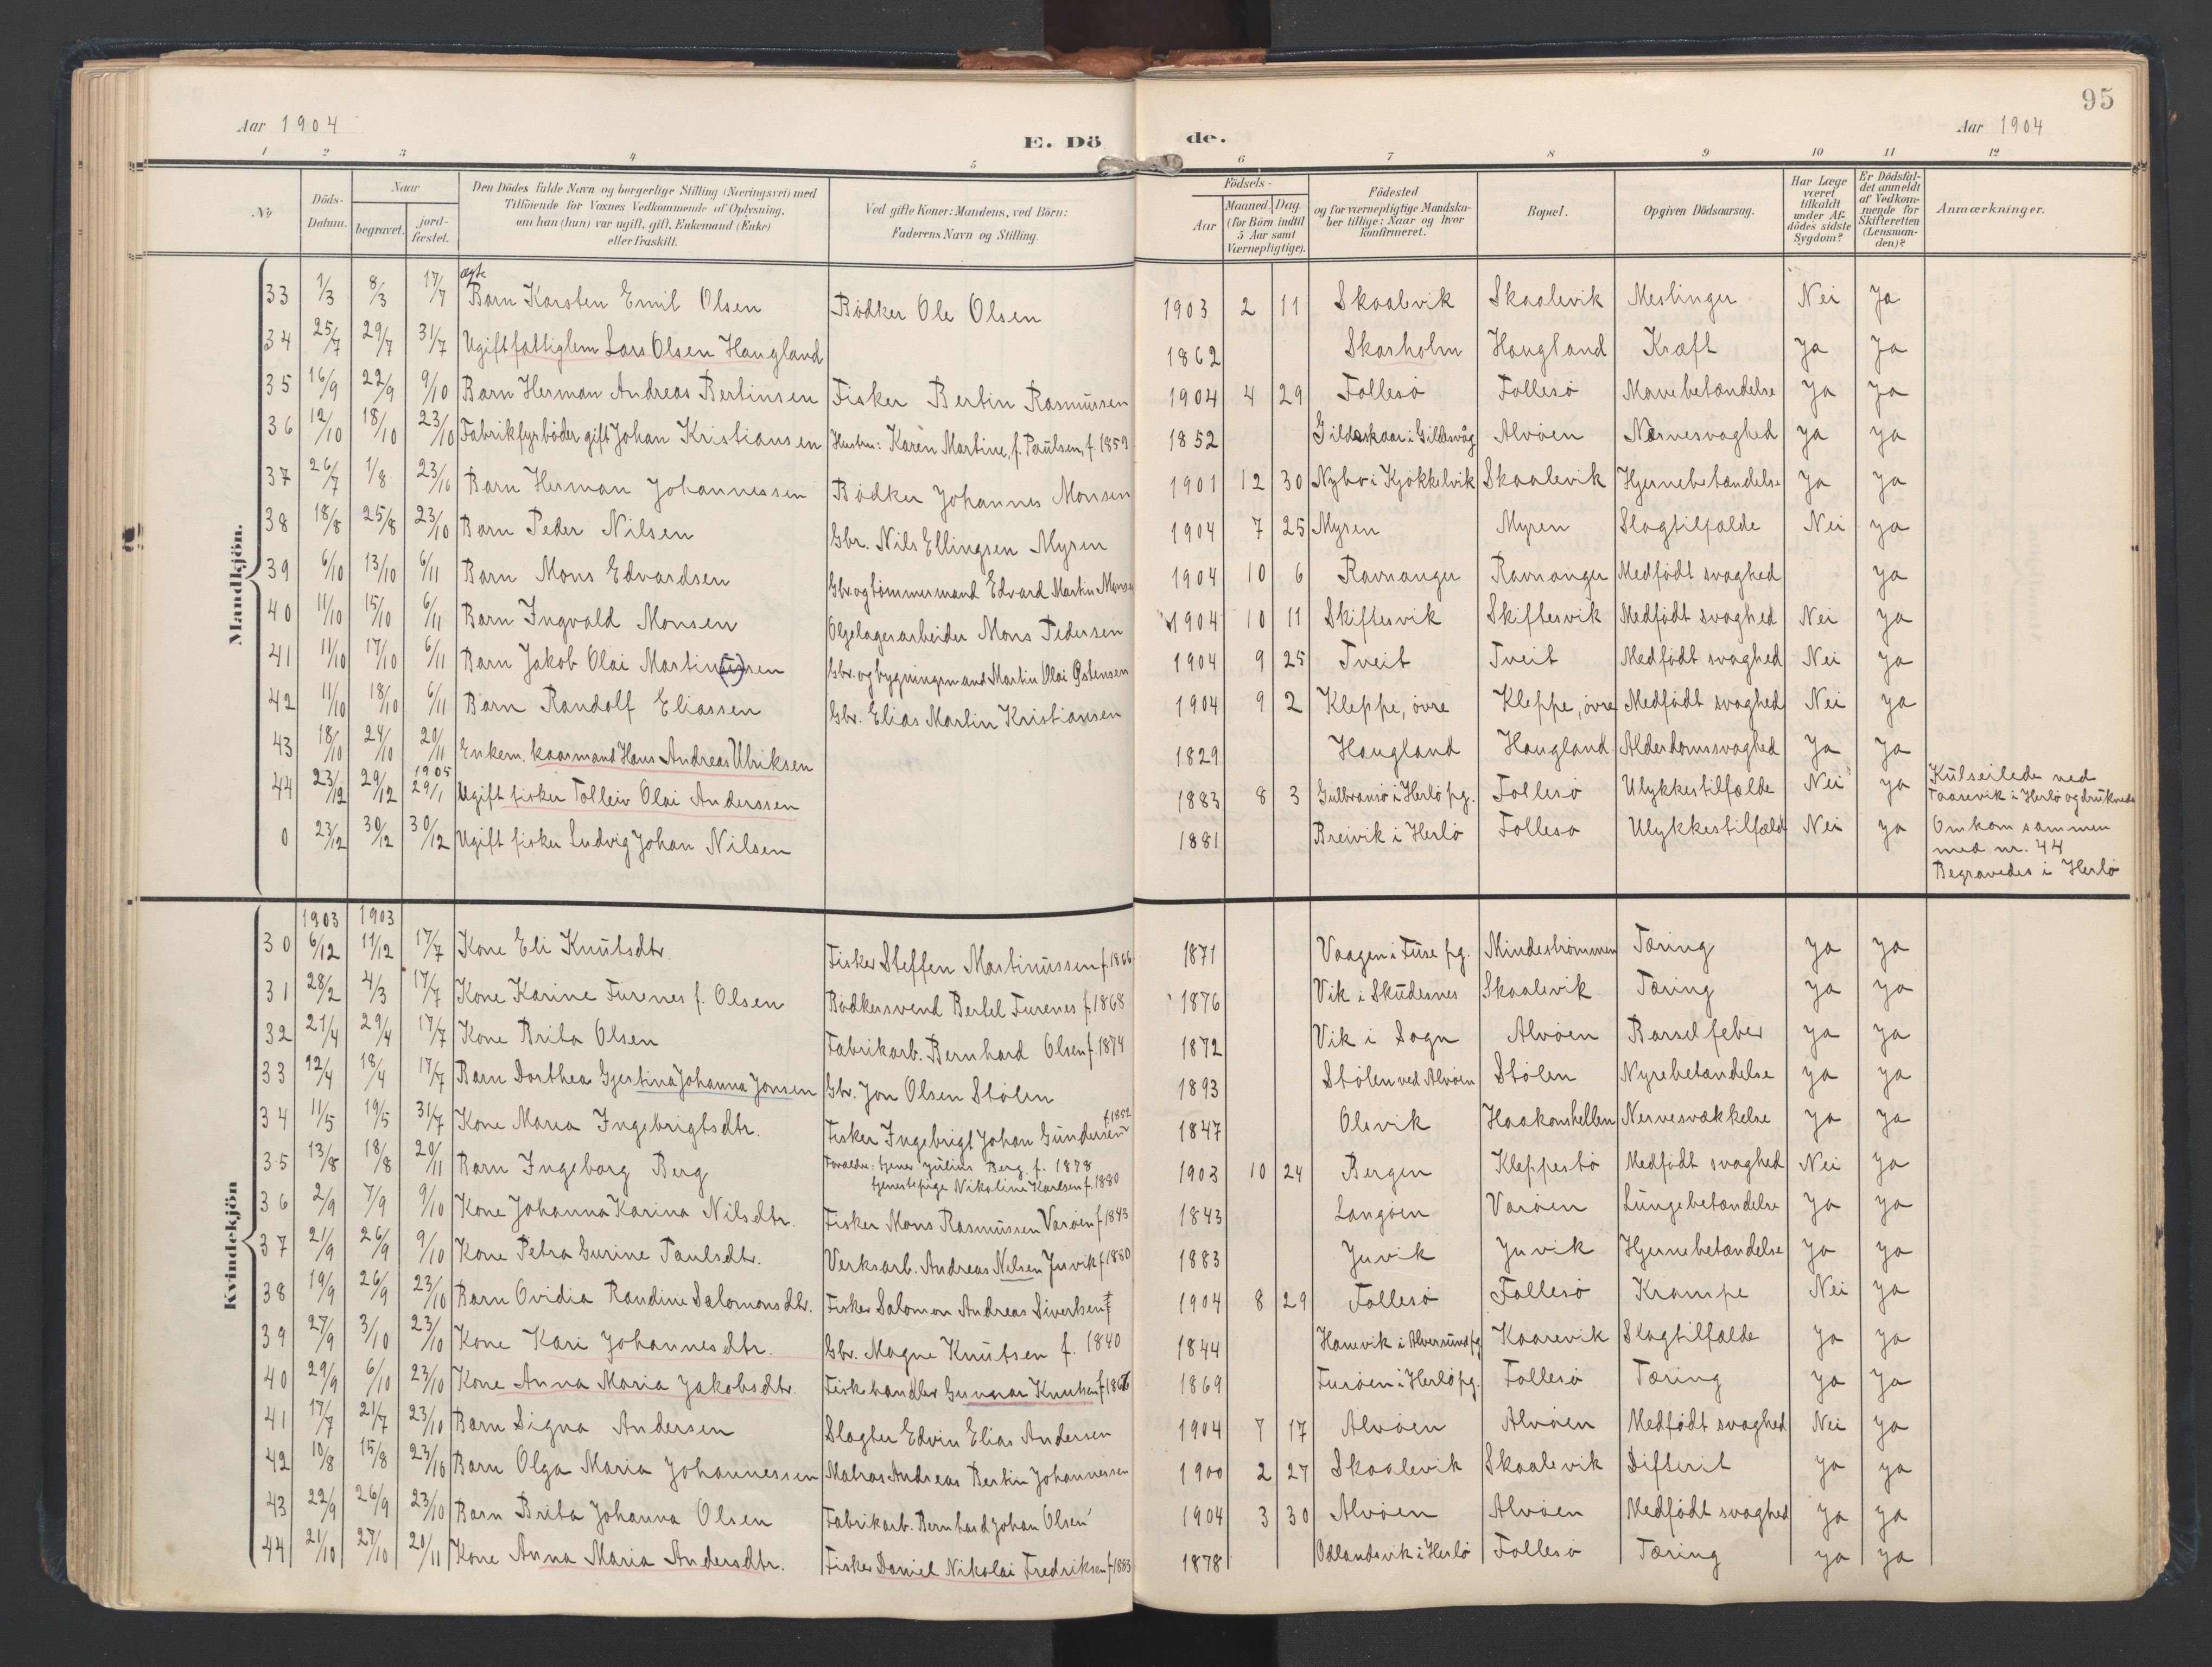 95
Aar 1904
E. Dö de.
Aar 1904
1 2 3 4 5 6 7 8 9 10 11 12
No
Döds-Datum.
Naar
begravet.
jord-fæstet.
Den Dödes fulde Navn og borgerlige Stilling (Næringsvei) med
Tilföiende for Voxnes Vedkommende af Oplysning,
om han (hun) var ugift, gift, Enkemand (Enke)
eller fraskilt.
Ved gifte Koner: Mandens, ved Börn:
Faderens Navn og Stilling.
Födsels-
Aar
Maaned. Dag.
(for Börn indtil
5 Aar samt
Værnepligtige).
Födested
og for værnepligtige Mandska-
ber tillige: Naar og hvor
konfirmeret.
Bopæl.
Opgiven Dödsaarsag.
Har Læge
været
tilkaldt
under Af-
dödes sidste
Sygdom?
Er Dödsfal-
det anmeldt
af Vedkom-
mende for
Skifteretten
(Lensman-
den)?
Anmærkninger.
Mandkjön.
ægte
33 1/3 8/3 17/7 Barn Karsten Emil Olsen Bødker Ole Olsen 1903 2 11 Skaalvik Skaalevik Meslinger Nei Ja
34 25/7 29/7 31/7 Ugift fattiglem Lars Olsen Haugland 1862 Skarholm Haugland Kræft Ja Ja
35 16/9 22/9 9/10 Barn Herman Andreas Bertinsen Fisker Bertin Rasmussen 1904 4 29 Follesø Follesø Mavebetændelse Ja Ja
36 12/10 18/10 23/10 Fabrikfyrbøder gift Johan Kristiansen Hustru: Karen Martine, f. Paulsen, f. 1859 1852 Gildeskaar i Gildesvåg Alvøen Nervesvaghed Ja Ja
37 26/7 1/8 23/10 Barn Herman Johannessen Bødker Johannes Monsen 1901 12 30 Nybø i Kjøkkelvik Skaalevik Hjernebetændelse Ja Ja
38 18/8 25/8 23/10 Barn Peder Nilsen Gbr. Nils Ellingsen Myren 1904 7 25 Myren Myren Slagtilfælde Nei Ja
39 6/10 13/10 6/11 Barn Mons Edvardsen Gbr. og tømmermand Edvard Martin Monsen 1904 10 6 Ravnanger Ravnanger Medfødt svaghed Ja
40 11/10 15/10 6/11 Barn Ingvald Monsen Oljelagerarbeider Mons Pedersen 1904 10 11 Skiftesvik Skiftesvik Medfødt svaghed Nei Ja
41 11/10 17/10 6/11 Barn Jakob Olai Martin(us)sen Gbr. og bygningsmand Martin Olai Østensen 1904 9 25 Tveit Tveit Medfødt svaghed Nei Ja
42 11/10 18/10 6/11 Barn Randolf Eliassen Gbr. Elias Martin Kristiansen 1904 9 2 Kleppe, øvre Kleppe, øvre Medfødt svaghed Nei Ja
43 18/10 24/10 20/11 Enkem. kaarmand Hans Andreas Ulriksen 1829 Haugland Haugland Alderdomssvaghed Ja Ja
44 23/12 29/12 1905 29/1 Ugift fisker Tolleiv Olai Anderssen 1883 8 3 Gulbransø i Herlø pg. Follesø Ulykkestilfælde Nei Ja Kulseilede ved
Taarevik i Herlø og druknede
0 23/12 30/12 30/12 Ugift fisker Ludvig Johan Nilsen 1881 Breivik i Herlø Follesø Ulykkestilfæld Nei Ja Omkom sammen
med nr. 44
Begravedes i Herlø
Kvindekjön
1903 1903
30 6/12 11/12 17/7 Kone Eli Knutsdtr. Fisker Steffen Martinussen f. 1866 1871 Vaagen i Fuse pg. Mindestrømmen Tæring Ja Ja
31 28/2 4/3 17/7 Kone Karine Furenes f. Olsen Bødkersvend Bertel Furenes f. 1868 1876 Vik i Skudesnes Skaalevik Tæring Ja Ja
32 21/4 29/4 17/7 Kone Brita Olsen Fabrikarb. Bernhard Olsen f. 1874 1872 Vik i Sogn Alvøen Barselfeber Ja Ja
33 12/4 18/4 17/7 Barn Dorthea Gjertina Johanna Jonsen Gbr. Jon Olsen Stølen 1893 Stølen ved Alvøen Stølen Nyrebetændelse Ja Ja
34 11/5 19/5 31/7 Kone Maria Ingebrigtsdtr. Fisker Ingebrigt Johan Gundersen f. 1852 1847 Olsvik Haakonshellen Nervesvækkelse Ja Ja
35 13/8 18/8 20/11 Barn Ingeborg Berg Forældre: tjener Julius Berg f. 1878
tjenestepige Nikoline Karlsen f. 1880 1903 10 24 Bergen Kleppestø Medfødt svaghed Nei Ja
36 2/9 7/9 9/10 Kone Johanna Karina Nilsdtr. Fisker Mons Rasmussen Varøen f. 1843 1843 Langøen Varøen Lungebetændelse Ja Ja
37 21/9 26/9 9/10 Kone Petra Gurine Paulsdtr. Verksarb. Andreas Nilsen Juvik f. 1880 1883 Juvik Juvik Hjernebetændelse Ja Ja
38 19/9 26/9 23/10 Barn Ovidia Randine Salomonsdtr. Fisker Salomon Andreas Sivertsen 1904 8 29 Follesø Follesø Krampe Nei Ja
39 27/9 3/10 23/10 Kone Kari Johannesdtr. Gbr. Magne Knutsen f. 1840 1844 Hanevik i Alversund pg Kaarevik Slagtilfælde Ja Ja
40 29/9 6/10 23/10 Kone Anna Maria Jakobsdtr. Fiskehandler Gunnar Knutsen 1869 Furøen i Herlø pg. Follesø Tæring Ja Ja
41 17/7 21/7 23/10 Barn Signa Andersen Slagter Edvin Elias Andersen 1904 7 17 Alvøen Alvøen Medfødt svaghed Nei Ja
42 10/8 15/8 23/10 Barn Olga Maria Johannessen Matros Andreas Bertin Johannessen 1900 2 27 Skaalevik Skaalevik Difterit Ja Ja
43 22/9 26/9 23/10 Barn Brita Johanna Olsen Fabrikarb. Bernhard Johan Olsen 1904 3 30 Alvøen Alvøen Medfødt svaghed Ja Ja
44 21/10 27/10 20/11 Kone Anna Maria Andersdtr. Fisker Daniel Nikolai Fredriksen f. 1883 1878 Odlandsvik i Herlø Follesø Tæring Ja Ja